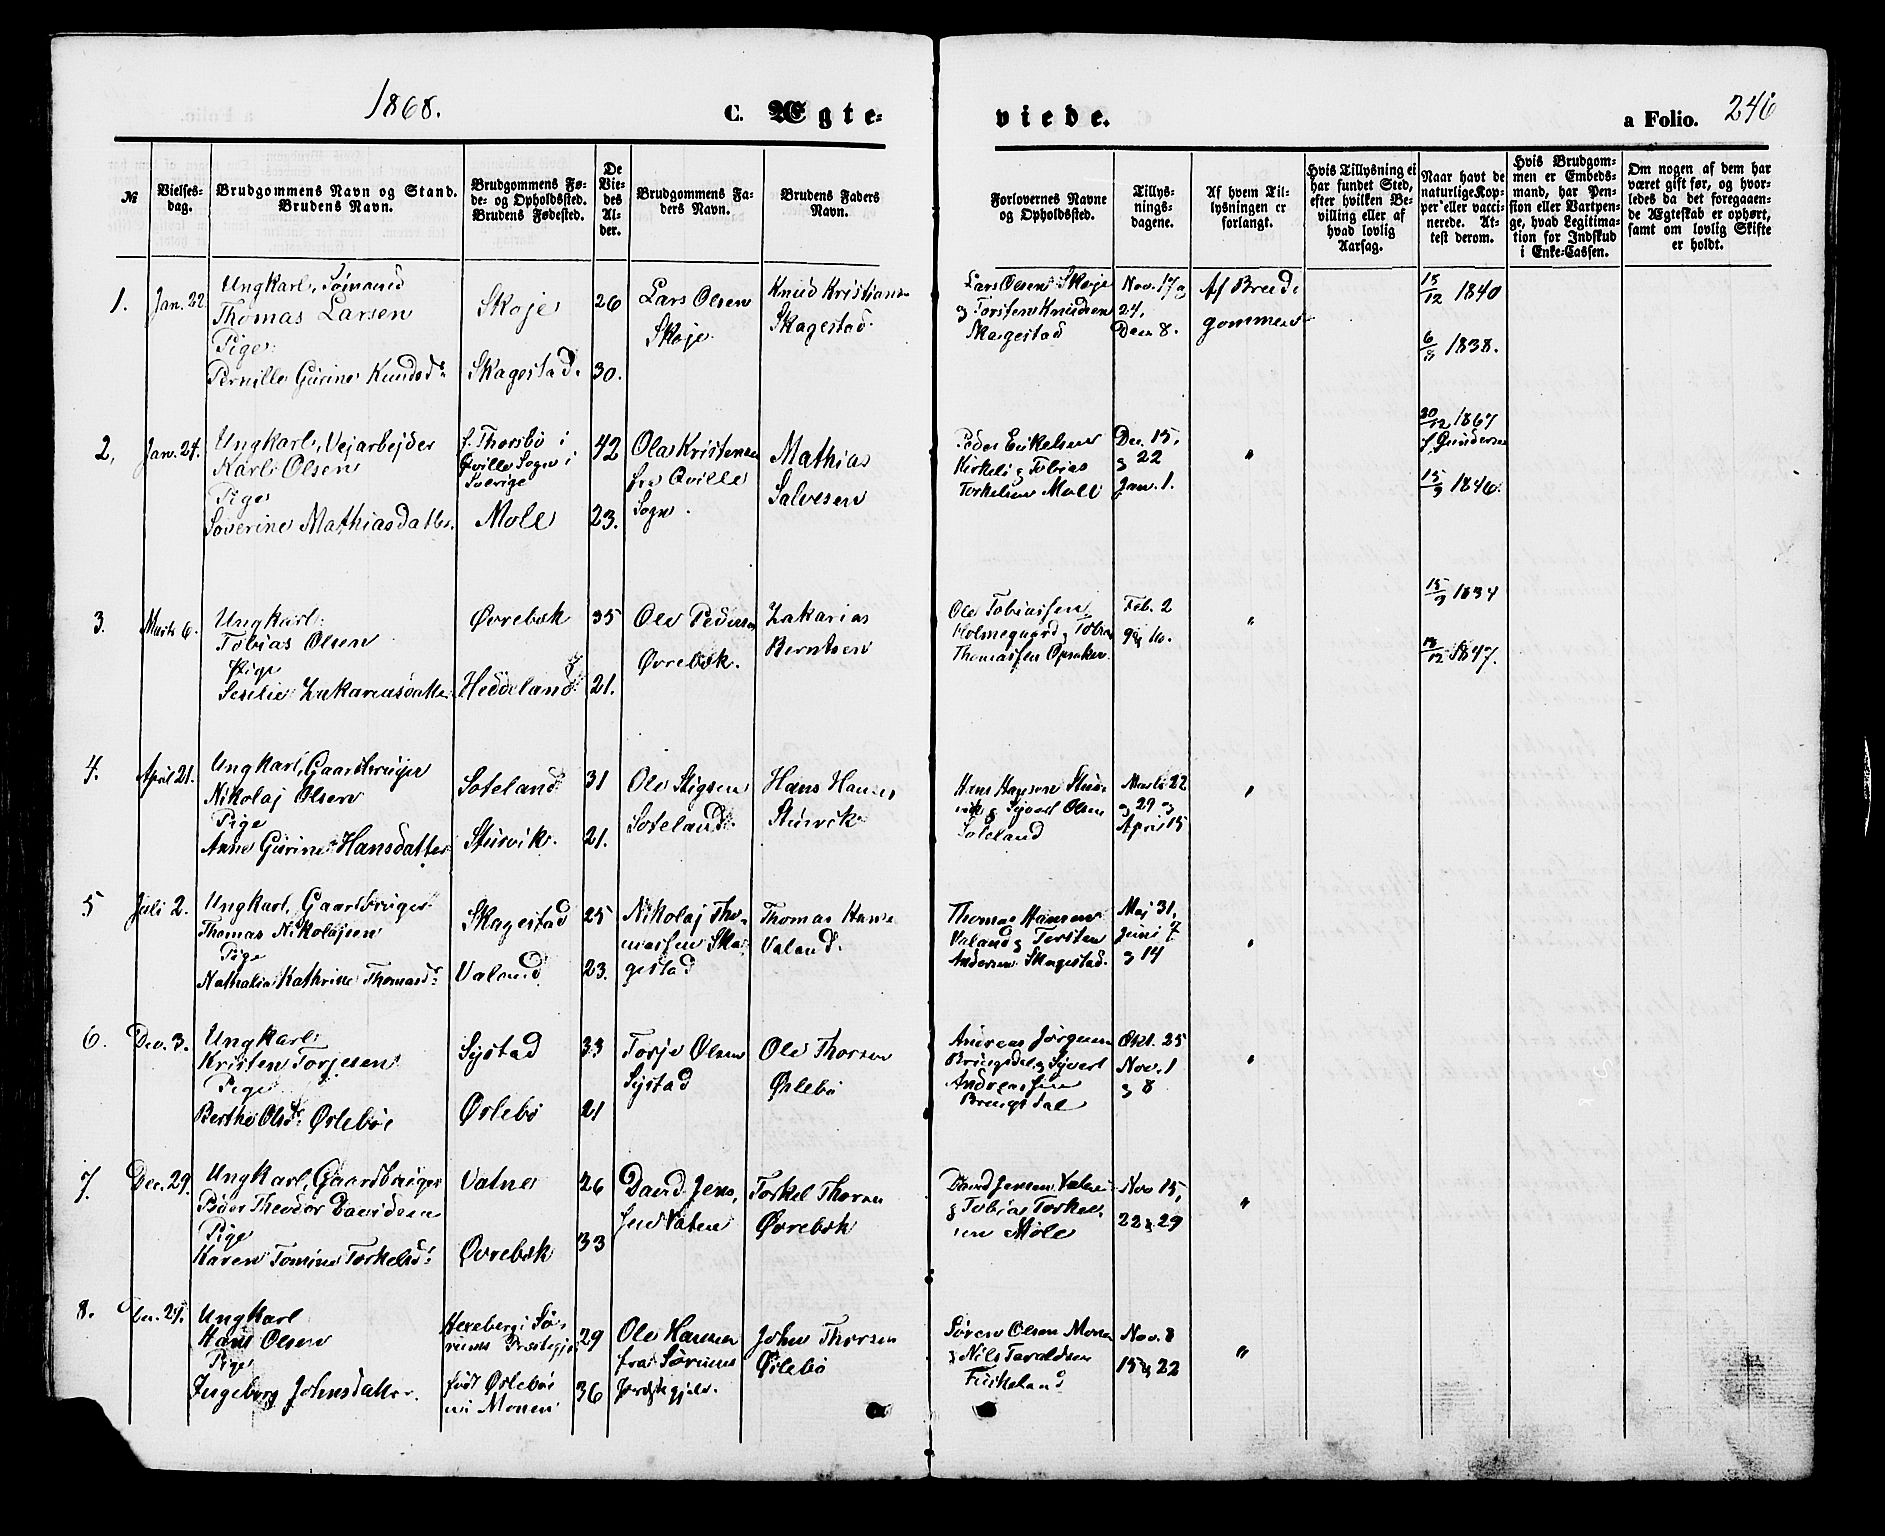 1868.
C. Ægte-
viede.
a Folio. 246
№
Vielses-
dag.
Brudgommens Navn og Stand.
Brudens Navn.
Brudgommens Fø-
de- og Opholdssted.
Brudens Fødested.
De
Vie-
des
Al-
der.
Brudgommens Fa-
ders Navn.
Brudens Faders
Navn.
Forlovernes Navne
og Opholdssted.
Tillys-
nings-
dagene.
Af hvem Til-
lysningen er
forlangt.
Hvis Tillysning ei
har fundet Sted,
efter hvilken Be-
villing eller af
hvad lovlig
Aarsag.
Naar havt de
naturlige Kop-
per eller vacci-
nerede. At-
test derom.
Hvis Brudgom-
men er Embeds-
mand, har Pen-
sion eller Vartpen-
ge, hvad Legitima-
tion for Indskud
i Enke-Cassen.
Om nogen af dem har
været gift før, og hvor-
ledes da det foregaaen-
de Ægteskab er ophørt,
samt om lovlig Skifte
er holdt.
1. Jan. 22
Ungkarl, Sømand
Thomas Larsen
Pige
Pernille Gurine Knudsd.
Skoje
Skagestad.
26
30.
Lars Olsen
Skøje
Knud Kristians
Skagestad.
Lars Olsen Skøje
og Torsten Knudsen
Skagestad
Nov. 17 og
24,
Dec. 8.
Af Brud-
gommen
15/12 1840
6/8 1838.
2, Jan. 24.
Ungkarl, Vejarbejder
Karl Olsen
Pige
Severine Mathiasdatter
f. Thorsbö i
Qville Sogn i
Sverige
Mole
42
23.
Ola Kristensen
fra Qville
Sogn.
Mathias
Salvesen
Peder Enkelsen
Kirkeli og Tobias
Torkelsen Mole
Dec. 15,
og 22
Jan. 1.
"
20/12 1867
f. Gundersen
15/9 1846.
3. Marts 6.
Ungkarl
Tobias Olsen
Pige
Sesilie Zakariasdatter
Øvrebøk
Heddeland
35
21.
Ole Pedersen
Øvrebøk.
Zakarias
Berntsen
Ole Tobiassen
Holmegaard og Tobias
Thomassen Opsaker
Feb. 2
9 og 16.
"
15/9 1834
13/12 1847.
4. April 21.
Ungkarl, Gaardbruger
Nikolaj Olsen
Pige
Anne Gurine Hansdatter
Soteland
Stusvik.
31
21.
Ole Stigsen
Soteland
Hans Hansen
Stusvik
Hans Hansen Stus-
vik og Sjvert Olsen
Soteland
Marts 22
og 29 og
April 15
"
5 Juli 2.
Ungkarl, Gaardbruger
Thomas Nikolajsen
Pige
Nathalia Kathrine Thomasd.
Skagestad
Valand
25
23.
Nikolaj Tho-
massen Ska-
gestad
Thomas Hans
Valand.
Thomas Hansen
Valand og Torsten
Andersen Skagestad.
Maj 31,
Juni 7
og 14
"
6. Dec. 3.
Ungkarl
Kristen Torjesen
Pige
Berthe Olsd. Ørlebø
Systad
Ørlebö
33
21
Torje Olsen
Systad
Ole Thorsen
Ørlebö
Andreas Jørgensen
Bringsdal og Syvert
Andreassen
Bringsdal
Okt. 25
Nov. 1
og 8
"
7. Dec. 29.
Ungkarl, Gaardbruger
Peder Theodor Davidsen
Pige
Karen Tomine Torkelsd.
Vatne
Øvrebøk
26
33
David Jens-
sen Vatne
Torkel Thorsen
Øvrebøk
David Jensen Vatne
og Tobias Torkel-
sen Mole
Nov 15,
22 og 29
"
8. Dec. 29.
Ungkarl
Hans Olsen
Pige
Ingeborg Johnsdatter.
Hexeberg i Sø-
rums Præstegj.
født Ørlebö
i Monen
29
36
Ole Hansen
fra Sørums
Præstegjeld.
John Thorsen
Ørlebö
Søren Olsen Monen
og Nils Taraldsen
Fuskeland
Nov. 8
15 og 22
"